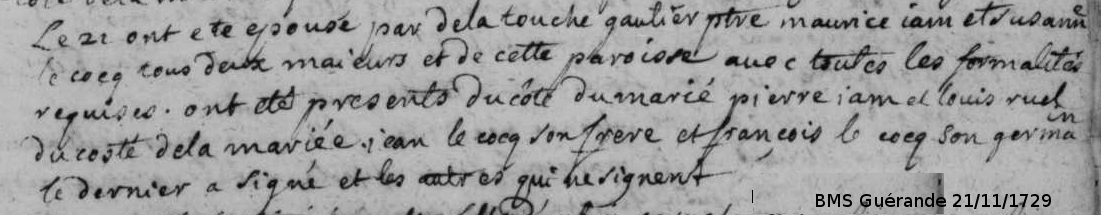 Le 21 ont ete epousé par dela touche gautier ptre maurice iam et Susanne
le cocq tous deux maieurs et de cette paroisse avec toutes les formalités
requises. ont eté presents du côté du marié pierre iam et louis ruel
du costé dela mariée. jean le cocq son frere et françois le cocq son germain
le dernier a signé et les autres qui ne signent
BMS Guérande 21/11/1729